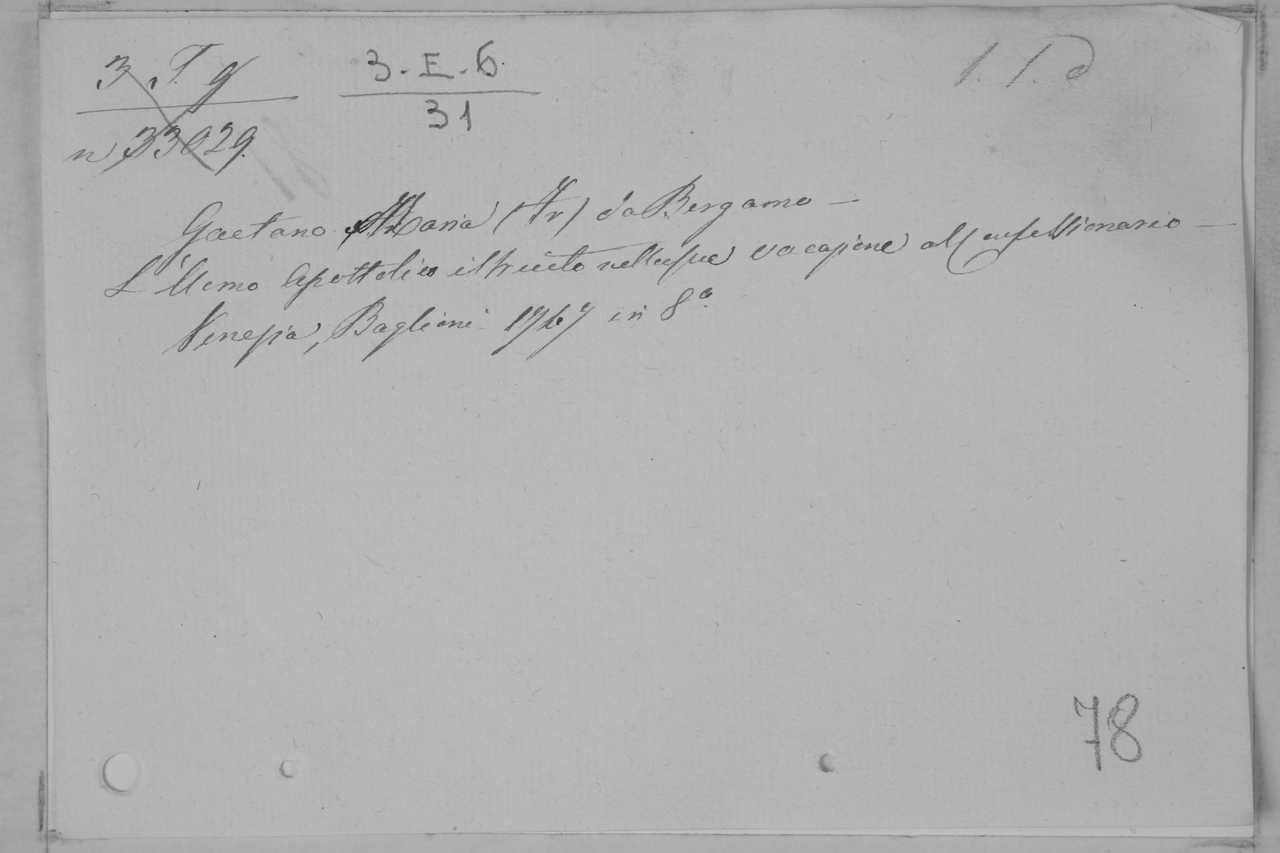 3. T. 9
n 33029.
3. E. 6.
31
1. 1. d
Gaetano Maria (Fr) da Bergamo —
L'Uomo Apostolico istruito nella sua vocazione al confessionario —
Venezia, Baglioni 1767 in 8°.
78